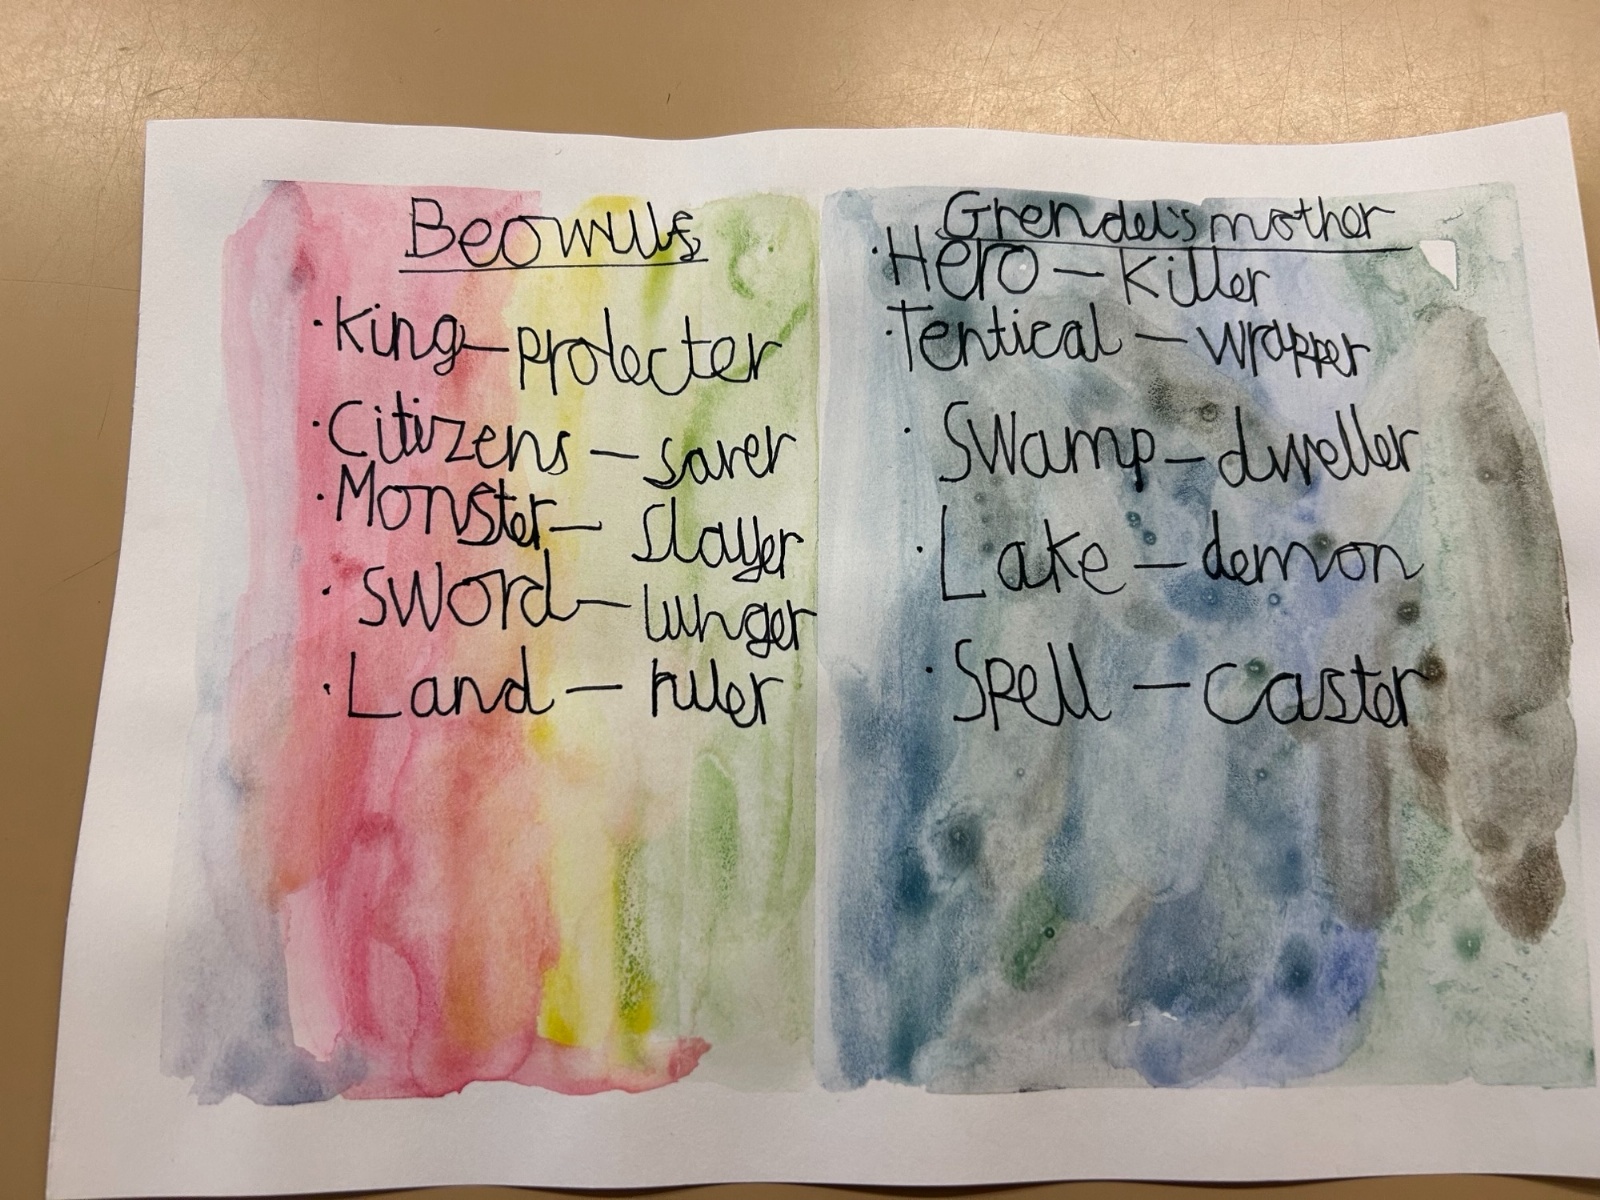 Beowulf
· King — protecter
· Citizens — saver
· Monster — Slayer
· Sword — lunger
· Land — ruler
Grendel's mother
· Hero — killer
· Tentical — wrapper
· Swamp — dweller
· Lake — demon
· Spell — caster